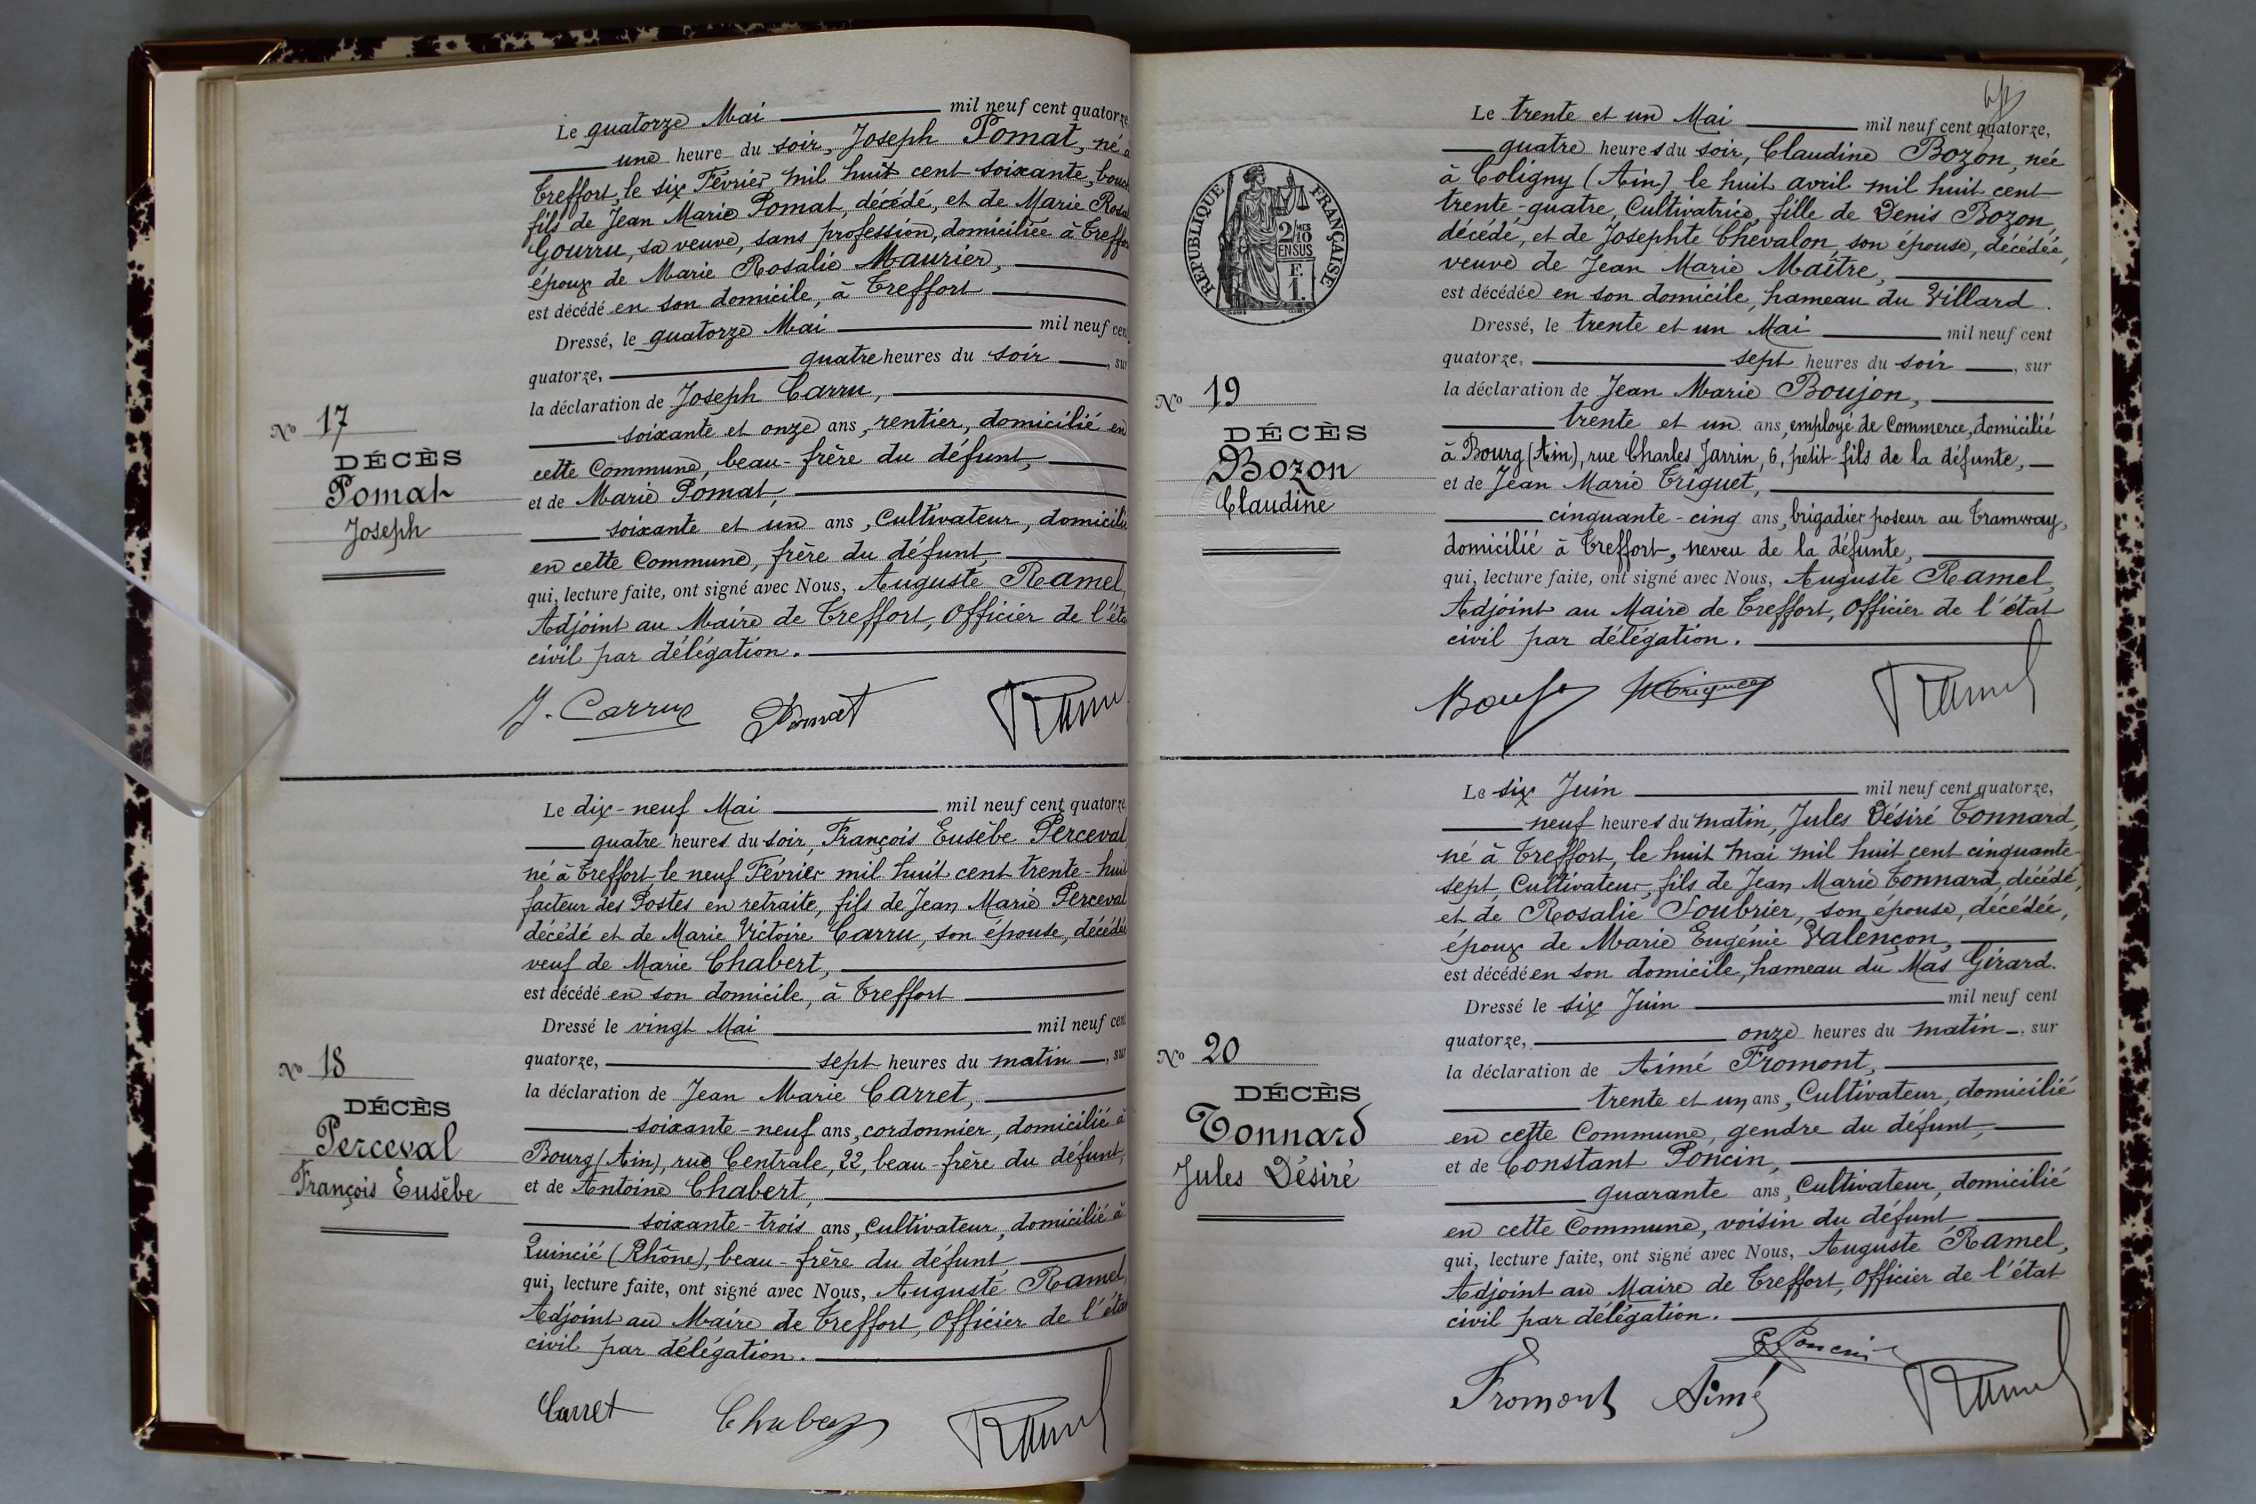 Le quatorze Mai mil neuf cent quatorze
une heure du soir, Joseph Pomat, né à
Treffort, le six Février mil huit cent soixante,
fils de Jean Marie Pomat, décédé, et de Marie
Gourru, sa veuve, sans profession, domiciliée à Treffort
époux de Marie Rosalie Maurier,
est décédé en son domicile, à Treffort
Dressé, le quatorze Mai mil neuf cent
quatorze, quatre heures du soir, sur
la déclaration de Joseph Carru,
soixante et onze ans, rentier, domicilié en
cette Commune, beau-frère du défunt,
et de Marie Pomat,
soixante et un ans, Cultivateur, domicilié
en cette Commune, frère du défunt,
qui, lecture faite, ont signé avec Nous, Auguste Ramel,
Adjoint au Maire de Treffort, Officier de l'état
civil par délégation.
J. Carru Pomat Ramel
No 17
DÉCÈS
Pomat
Joseph
Le dix-neuf Mai mil neuf cent quatorze
quatre heures du soir, François Eusèbe Perceval
né à Treffort le neuf Février mil huit cent trente-huit
facteur des Postes en retraite, fils de Jean Marie Perceval
décédé et de Marie Victoire Carru, son épouse, décédée
veuf de Marie Chabert,
est décédé en son domicile, à Treffort
Dressé le vingt Mai mil neuf cent
quatorze, sept heures du matin, sur
la déclaration de Jean Marie Carret,
soixante-neuf ans, cordonnier, domicilié à
Bourg (Ain), rue Centrale, 22, beau-frère du défunt,
et de Antoine Chabert,
soixante-trois ans, Cultivateur, domicilié à
Quincié (Rhône), beau-frère du défunt
qui, lecture faite, ont signé avec Nous, Auguste Ramel,
Adjoint au Maire de Treffort, Officier de l'état
civil par délégation.
Carret Chabert Ramel
No 18
DÉCÈS
Perceval
François Eusèbe
RÉPUBLIQUE FRANÇAISE
2/10 MES
EN SUS
F.
1.
Le trente et un Mai mil neuf cent quatorze,
quatre heures du soir, Claudine Bozon, née
à Coligny (Ain), le huit avril mil huit cent
trente-quatre, Cultivatrice, fille de Denis Bozon,
décédé, et de Josephte Chevalon, son épouse, décédée,
veuve de Jean Marie Maître,
est décédée en son domicile, hameau du Villard.
Dressé, le trente et un Mai mil neuf cent
quatorze, sept heures du soir, sur
la déclaration de Jean Marie Boujon,
trente et un ans, employé de Commerce, domicilié
à Bourg (Ain), rue Charles Jarrin, 6, petit-fils de la défunte,
et de Jean Marie Triquet,
cinquante-cinq ans, brigadier poseur au Tramway,
domicilié à Treffort, neveu de la défunte,
qui, lecture faite, ont signé avec Nous, Auguste Ramel,
Adjoint au Maire de Treffort, Officier de l'état
civil par délégation.
Triquet Ramel
No 19
DÉCÈS
Bozon
Claudine
Le six Juin mil neuf cent quatorze,
neuf heures du matin, Jules Désiré Tonnard,
né à Treffort, le huit mai mil huit cent cinquante-
sept, Cultivateur, fils de Jean Marie Tonnard, décédé,
et de Rosalie Soubrier, son épouse, décédée,
époux de Marie Eugénie Valençon,
est décédé en son domicile, hameau du Mas Girard.
Dressé le six Juin mil neuf cent
quatorze, onze heures du matin, sur
la déclaration de Aimé Fromont,
trente et un ans, Cultivateur, domicilié
en cette Commune, gendre du défunt,
et de Constant Poncin,
quarante ans, Cultivateur, domicilié
en cette Commune, voisin du défunt
qui, lecture faite, ont signé avec Nous, Auguste Ramel,
Adjoint au Maire de Treffort, Officier de l'état
civil par délégation.
Fromont Aimé C Poncin Ramel
No 20
DÉCÈS
Tonnard
Jules Désiré